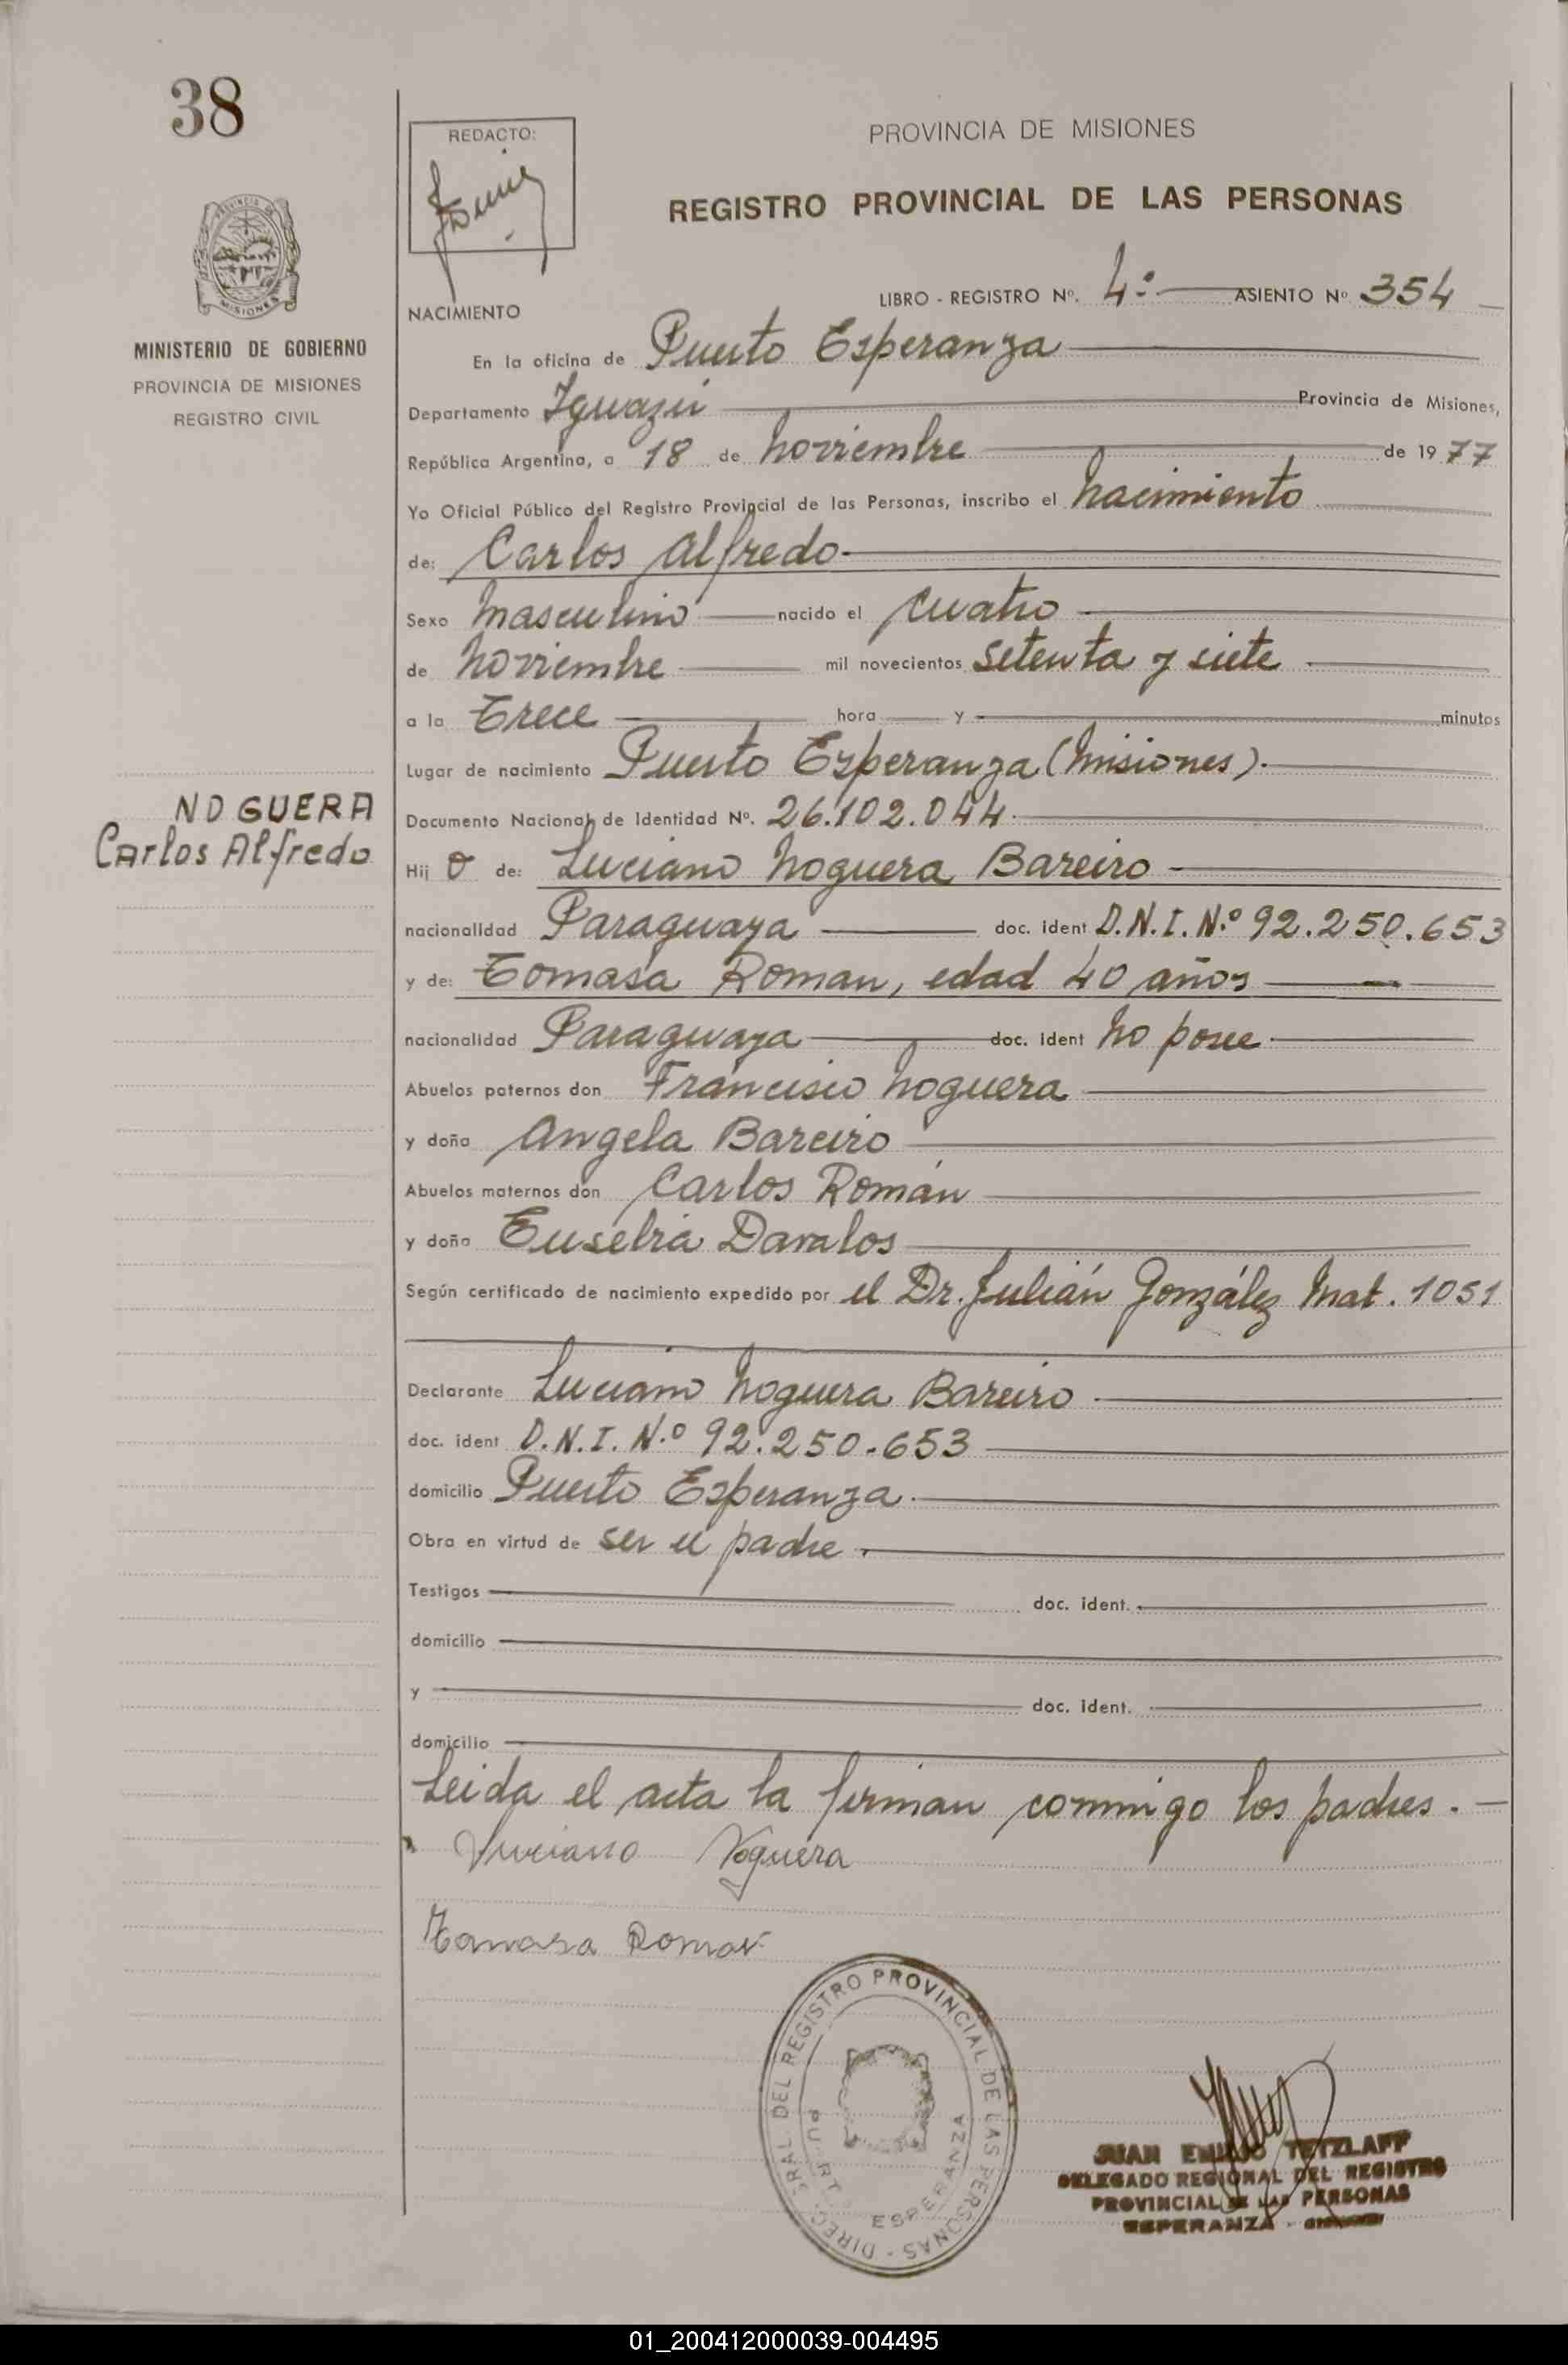 38
REDACTO:
PROVINCIA DE MISIONES
REGISTRO PROVINCIAL DE LAS PERSONAS
MINISTERIO DE GOBIERNO
PROVINCIA DE MISIONES
REGISTRO CIVIL
LIBRO - REGISTRO Nº. 4º ASIENTO Nº 354
NACIMIENTO
En la oficina de Puerto Esperanza
Departamento Iguazú Provincia de Misiones,
República Argentina, a 18 de noviembre de 1977
Yo Oficial Público del Registro Provincial de las Personas, inscribo el nacimiento
de: Carlos Alfredo
Sexo masculino nacido el cuatro
de noviembre mil novecientos setenta y siete
a la Trece hora y minutos
Lugar de nacimiento Puerto Esperanza (Misiones).
NOGUERA
Carlos Alfredo
Documento Nacional de Identidad Nº. 26.102.044
Hij o de: Luciano Noguera Bareiro
nacionalidad Paraguaya doc. ident D.N.I. N.º 92.250.653
y de: Tomasa Roman, edad 40 años
nacionalidad Paraguaya doc. ident no posee
Abuelos paternos don Francisco Noguera
y doña Angela Bareiro
Abuelos maternos don Carlos Román
y doña Eusebia Davalos
Según certificado de nacimiento expedido por el Dr. Julián González Mat. 1051
Declarante Luciano Noguera Bareiro
doc. ident D.N.I. N.º 92.250.653
domicilio Puerto Esperanza.
Obra en virtud de ser el padre.
Testigos doc. ident.
domicilio
y doc. ident.
domicilio
Leida el acta la firman conmigo los padres.
Luciano Noguera
Tomasa Roman
DIREC. GRAL. DEL REGISTRO PROVINCIAL DE LAS PERSONAS
ESPERANZA
JUAN EMILIO TETZLAFF
DELEGADO REGIONAL DEL REGISTRO
PROVINCIAL DE LAS PERSONAS
ESPERANZA
01_200412000039-004495